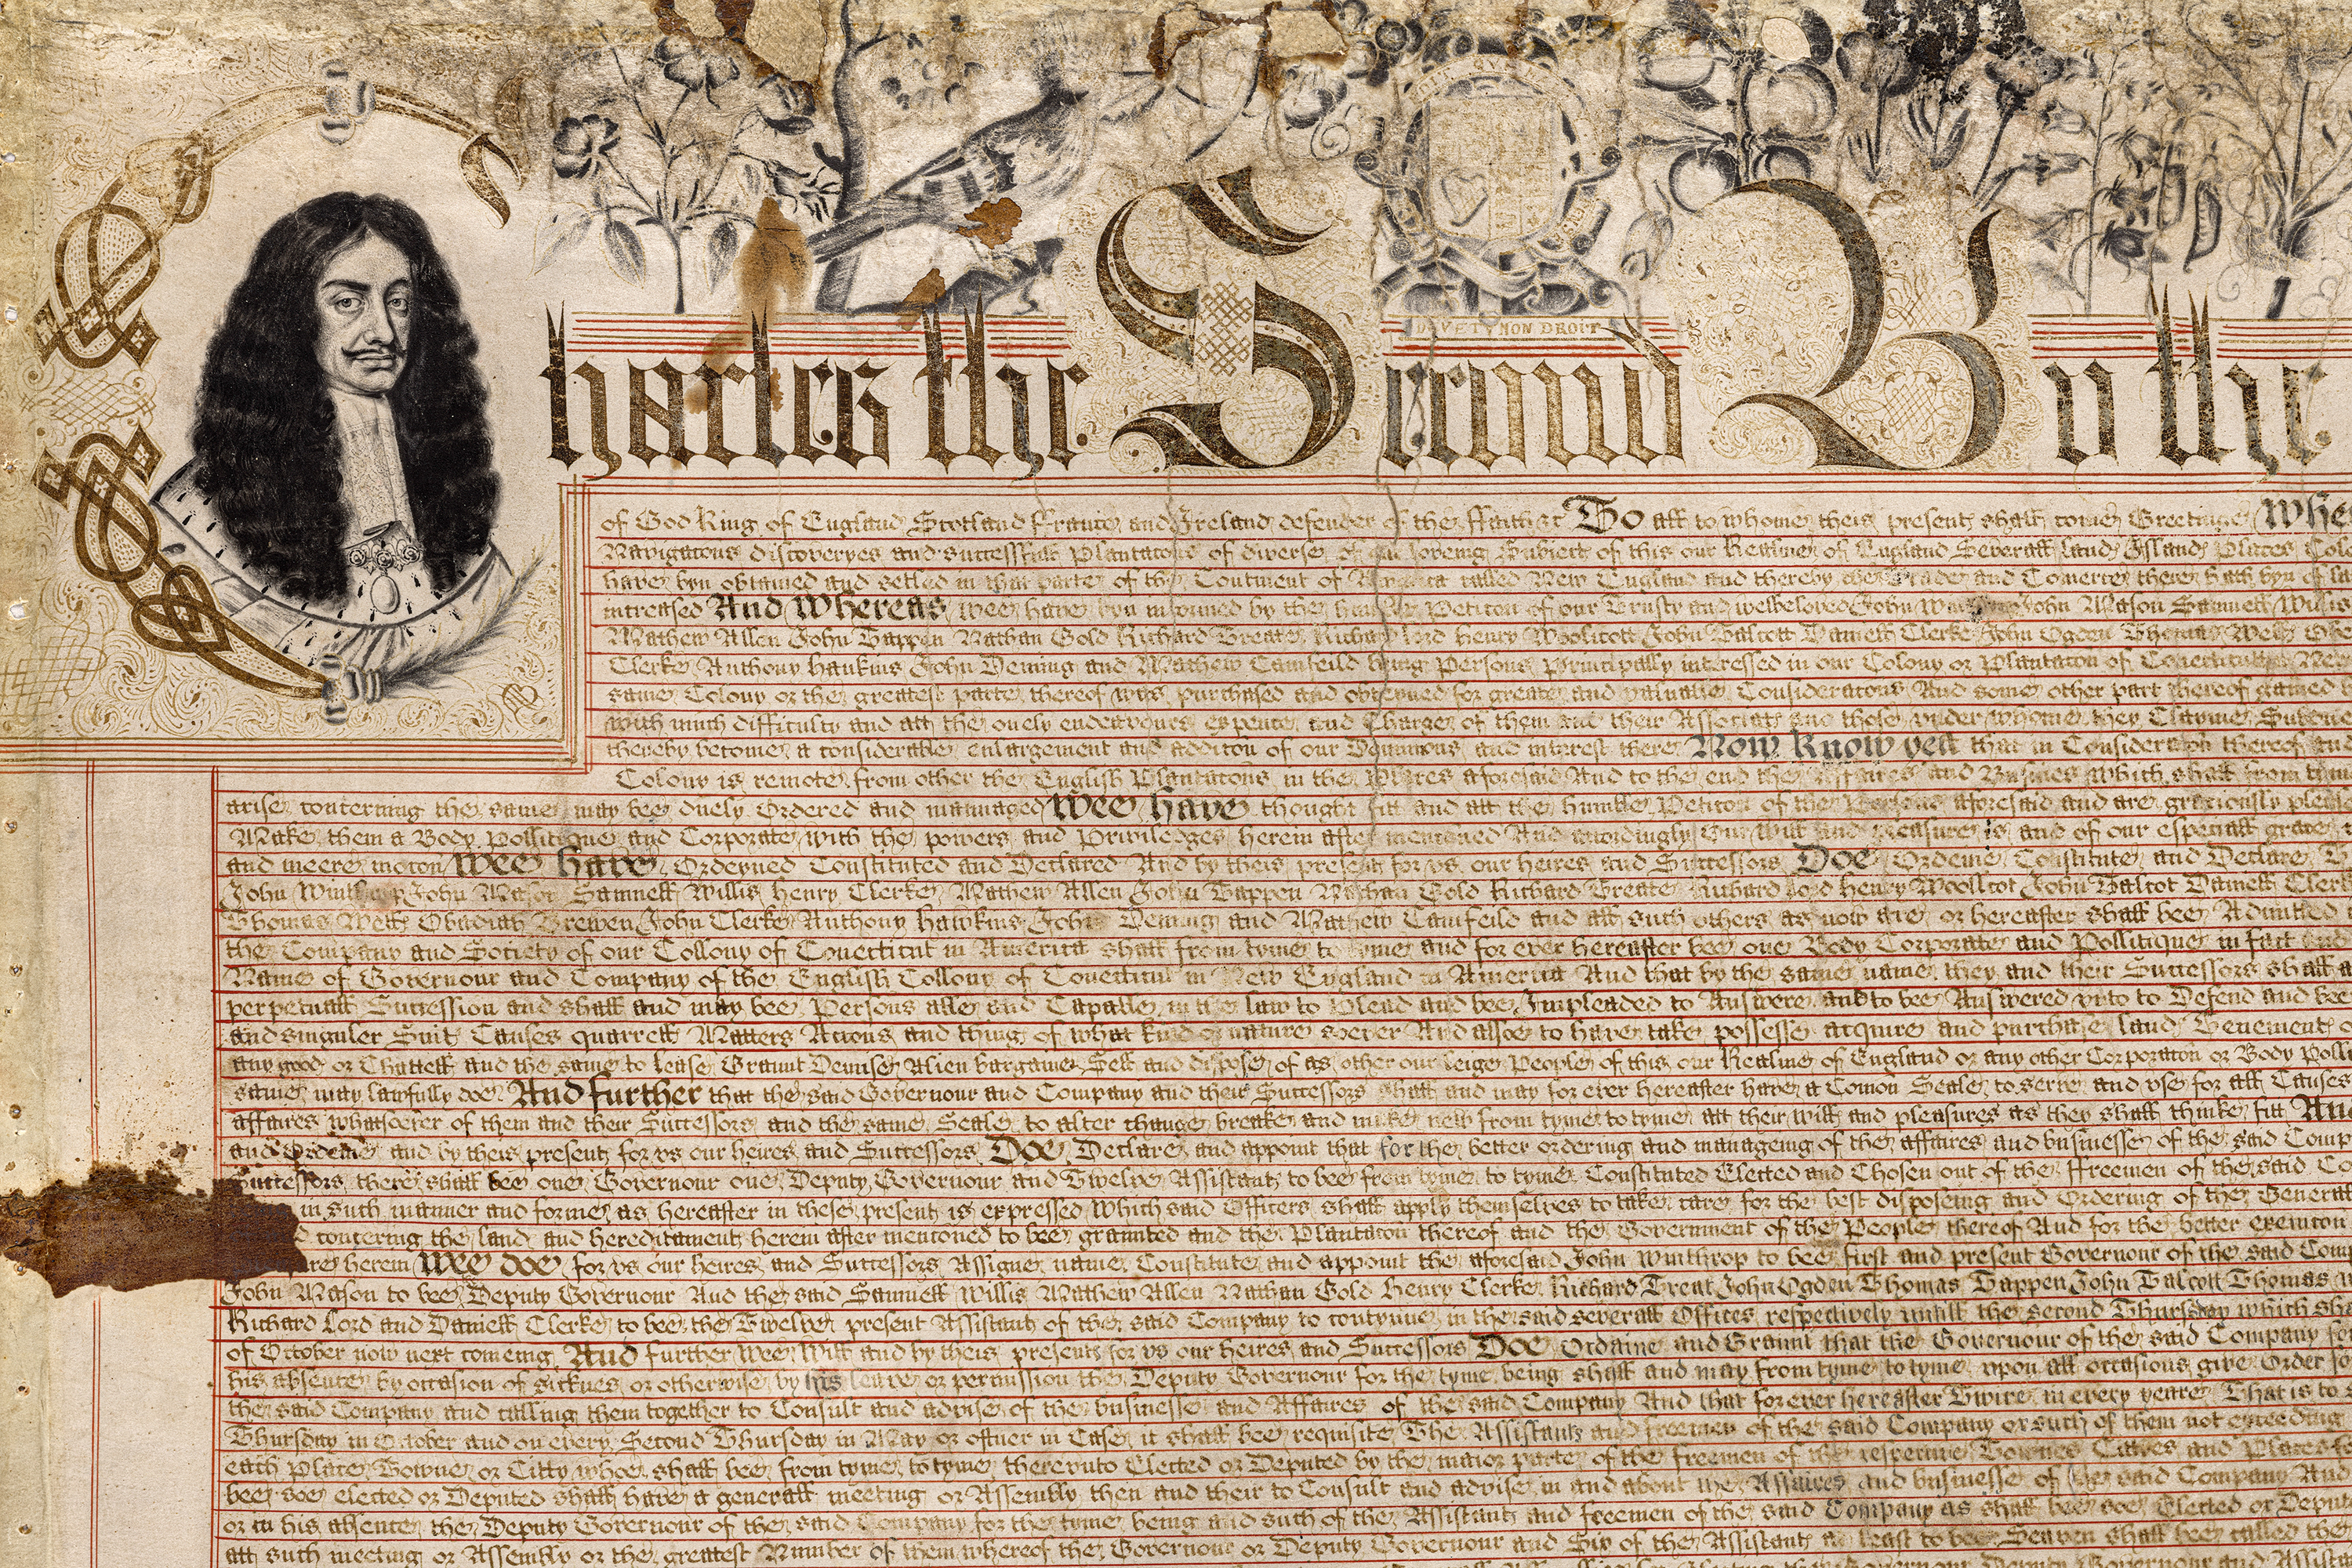 DIEV ET MON DROIT
Charles the Second By the
of God King of England Scotland France and Ireland defender of the Faith &c To all to whome theis present shall come Greetinge Whe
Navigatons discoveryes and successfull Plantatons of diverse of our loveing Subiect of this our Realme of England Severall land Island Places Col
have byn obtained and setled in that parte of the Continent of America called New England and thereby the Trade and Comerce there hath byn of la
increased And Whereas wee have byn informed by the humble Petiton of our Trusty and welbeloved John Winthrop John Mason Samuell Willis
Mathew Allen John Tappen Nathan Gold Richard Treate Richard Lord Henry Woolicott John Talcott Daniell Clerke John Ogden Thomas Wells Ob
Clerke Anthony Haukins John Deming and Mathew Camfeild being Persons Principally interessed in our Colony or Plantaton of Conecticutt in New
same Colony or the greatest parte thereof was purchased and obteyned for greate and valuable Consideratons And some other part thereof gained
with much difficulty and att the onely endeavours expence and Charge of them and their Associats and those vnder whome they Clayme Subdued
thereby become a considerable enlargement and additon of our Dominions and interest there Now Know yea that in Consideraton thereof and
Colony is remote from other the English Plantatons in the Places aforesaid And to the end the Affaires and Busines which shall from tyme
arise concerning the same may bee duely Ordered and mannaged Wee have thought fitt and att the humble Petiton of the Persons aforesaid and are graciously plea
Make them a Body Pollitique and Corporate with the powers and Priviledges herein after mentioned And accordingly Our Will and pleasure is and of our especiall grace
and meere moton Wee have Ordeyned Constituted and Declared And by theis present for vs our heires and Successors Doe Ordeine Constitute and Declare T
John Winthrop John Mason Samuell Willis Henry Clerke Mathew Allen John Tappen Nathan Gold Richard Treate Richard Lord Henry Woollcot John Talcot Daniell Clerk
Thomas Wells Obadiah Brewen John Clerke Anthony Hawkins John Deming and Mathew Camfeild and all such others as now are or hereafter shall bee Admitted
the Company and Society of our Collony of Conecticut in America shall from tyme to tyme and for ever hereafter bee one Body Corporate and Pollitique in fact and
Name of Governour and Company of the English Collony of Conecticut in New England in America And that by the same name they and their Successors shall a
perpetuall Succession and shall and may bee Persons able and Capable in the law to Plead and bee Impleaded to Answere and to bee Answered vnto to Defend and bee
and singuler Suit Causes quarrell Matters Actons and thing of what kind or nature soever And alsoe to have take possesse acquire and purchase land Tenement o
any good or Chattell and the same to lease Graunt Demise Alien bargaine Sell and dispose of as other our leige People of this our Realme of England or any other Corporaton or Body Poll
same may lawfully doe And further that the said Governour and Company and their Successors shall and may for ever hereafter have a Comon Seale to serve and vse for all Causes
affaires whatsoever of them and their Successors and the same Seale to alter change breake and make new from tyme to tyme att their will and pleasures as they shall thinke fitt And
and Ordeine and by theis present for vs our heires and Successors Doe Declare and appoint that for the better ordering and manageing of the affaires and businesse of the said Comp
Successors there shall bee one Governour one Deputy Governour and Twelve Assistant to bee from tyme to tyme Constituted Elected and Chosen out of the Freemen of the said Co
in such manner and forme as hereafter in these present is expressed Which said Officers shall apply themselves to take care for the best disposeing and Ordering of the Generall
concering the land and hereditament herein after mentioned to bee graunted and the Plantaton thereof and the Government of the People thereof And for the better executon
herein Wee doe for vs our heires and Successors Assigne name Constitute and appoint the aforesaid John Winthrop to bee first and present Governour of the said Com
John Mason to bee Deputy Governour And the said Samuell Willis Mathew Allen Nathan Gold Henry Clerke Richard Treat John Ogden Thomas Tappen John Talcott Thomas
Richard Lord and Daniell Clerke to bee the Twelve present Assistant of the said Company to contynue in the said severall Offices respectively untill the second Thursday which sh
of October now next comeing And further Wee Will and by theis present for vs our heires and Successors Doe Ordaine and Graunt that the Governour of the said Company fo
his absence by occasion of sicknes or otherwise by his leave or permission the Deputy Governour for the tyme being shall and may from tyme to tyme vpon all occasions give Order fo
the said Company and calling them together to Consult and advise of the businesse and Affaires of the said Company And that for ever hereafter Twice in every yeare That is to
Thursday in October and on every Second Thursday in May or oftner in Case it shall bee requisite The Assistants and freemen of the said Company or such of them not exceeding
each Place Towne or Citty whoe shall bee from tyme to tyme therevnto Elected or Deputed by the maior parte of the freemen of the respective Townes Citties and Places f
bee soe elected or Deputed shall have a generall meeting or Assembly then and their to Consult and advise in and about the Affaires and businesse of the said Company And
or in his absence the Deputy Governour of the said Company for the tyme being and such of the Assistant and freemen of the said Company as shall bee soe Elected or Deput
att such meeting or Assembly or the greatest Number of them whereof the Governour or Deputy Governour and Six of the Assistant at least to bee Seaven shall bee called the